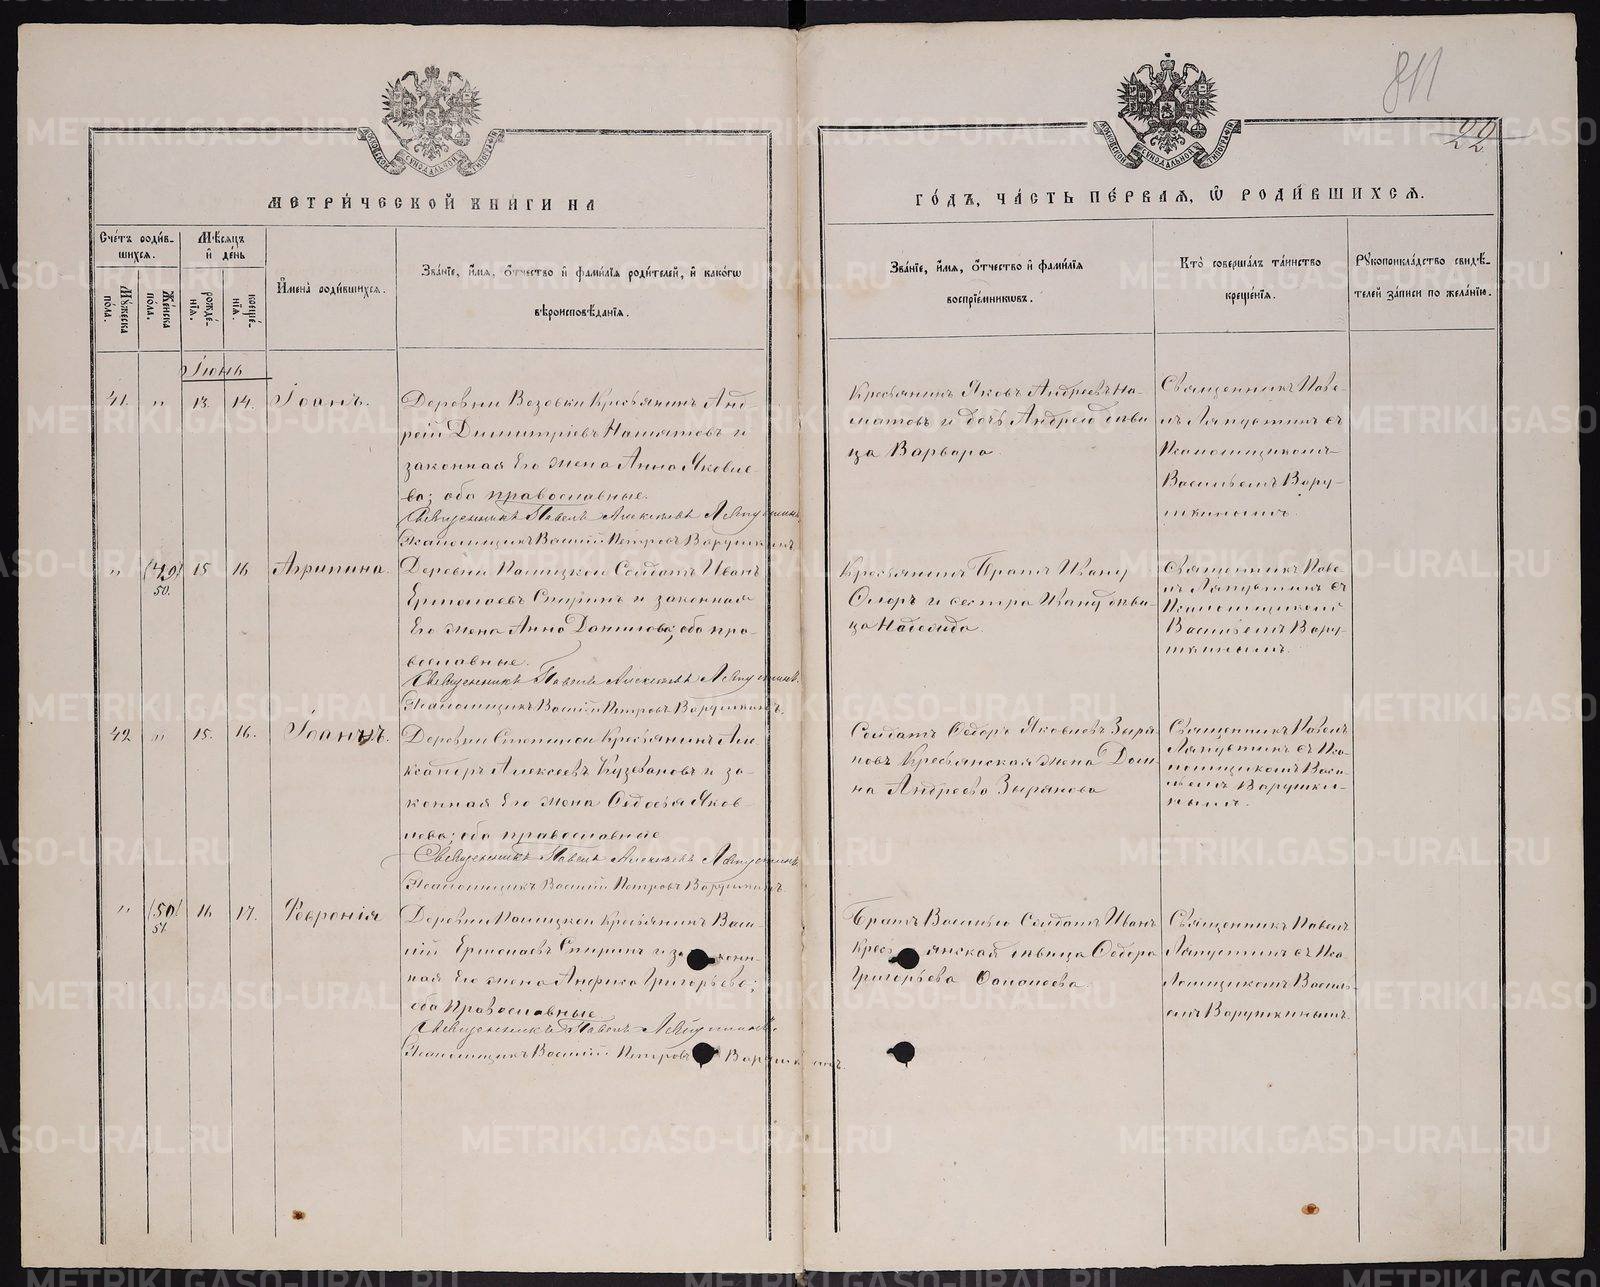 811
22
МЕТРИ́ЧЕСКОЙ КНИ́ГИ НА
ГО́ДЪ, ЧА́СТЬ ПЕ́РВАЯ, Ѡ РОДИ́ВШИХСЯ.
Сче́тъ роди́в-
шихся.
Му́жеска пола.
Же́нска по́ла.
Мѣ́сяцъ
и҆ де́нь
рожде́-
нїя.
креще́-
нїя.
И҆мена̀ роди́вшихся.
Зва́нїе, и҆́мя, ѻ҆́тчество и҆ фами́лїя роди́телей, и҆ како́гѡ
вѣроисповѣ́данїя.
Зва́нїе, и҆́мя, ѻ҆́тчество и҆ фами́лїя
воспрїе́мникѡвъ.
Кто̀ соверша́лъ та́инство
креще́нїя.
Рꙋкоприкла́дство свидѣ́-
телей за́писи по жела́нїю.
Іюнь
41. " 13. 14. Іоанъ.
Деревни Везовки Крестьянинъ Анд-
рей Димитріевъ и
законная Его жена Анна Яковле-
ва; оба православные.
Священникъ Павелъ Алексѣевъ Ляпустинъ
Псаломщикъ Василій Петровъ Варушкинъ
Крестьянинъ Яковъ Андреевъ
и дочь Андрея дѣви-
ца Варвара.
Священникъ Паве-
лъ Ляпустинъ съ
Псаломщикомъ
Васильемъ Вару-
шкинымъ.
" (49) 15 16 Агрипина.
50.
Деревни Солдатъ Иванъ
Ермолаевъ Спиринъ и законная
Его жена Анна Данилова; оба пра-
вославные.
Священникъ Павелъ Алексѣевъ Ляпустинъ.
Псаломщикъ Василій Петровъ Варушкинъ.
Крестьянинъ Братъ Ивану
и сестра Ивану дѣви-
ца Надежда.
Священникъ Паве-
лъ Ляпустинъ съ
Псаломщикомъ
Васильемъ Вару-
шкинымъ.
42 " 15. 16. Іоаннъ.
Деревни Крестьянинъ Але-
ксандръ Алексеевъ Кузевановъ и за-
конная Его жена Федосья Яков-
лева; оба православные
Священникъ Павелъ Алексѣевъ Ляпустинъ
Псаломщикъ Василій Петровъ Варушкинъ.
Солдатъ Федоръ Яковлевъ Зыря-
новъ Крестьянская жена Дом-
на Андреева Зырянова
Священникъ Павелъ
Ляпустинъ съ Пса-
ломщикомъ Васи-
льемъ Варушки-
нымъ.
" (50) 16 17. Февронія
51.
Деревни Крестьянинъ Васи-
лій Ермолаевъ Спиринъ и законн-
ная Его жена Анфиса Григорьева;
оба Православные
Священникъ Павелъ Ляпустинъ
Псаломщикъ Василій Петровъ Варушкинъ.
Братъ Василью Солдатъ Иванъ
Крестьянская дѣвица Федора
Григорьева
Священникъ Павелъ
Ляпустинъ съ Пса-
ломщикомъ Василь-
емъ Варушкинымъ.
METRIKI.GASO-URAL.RU